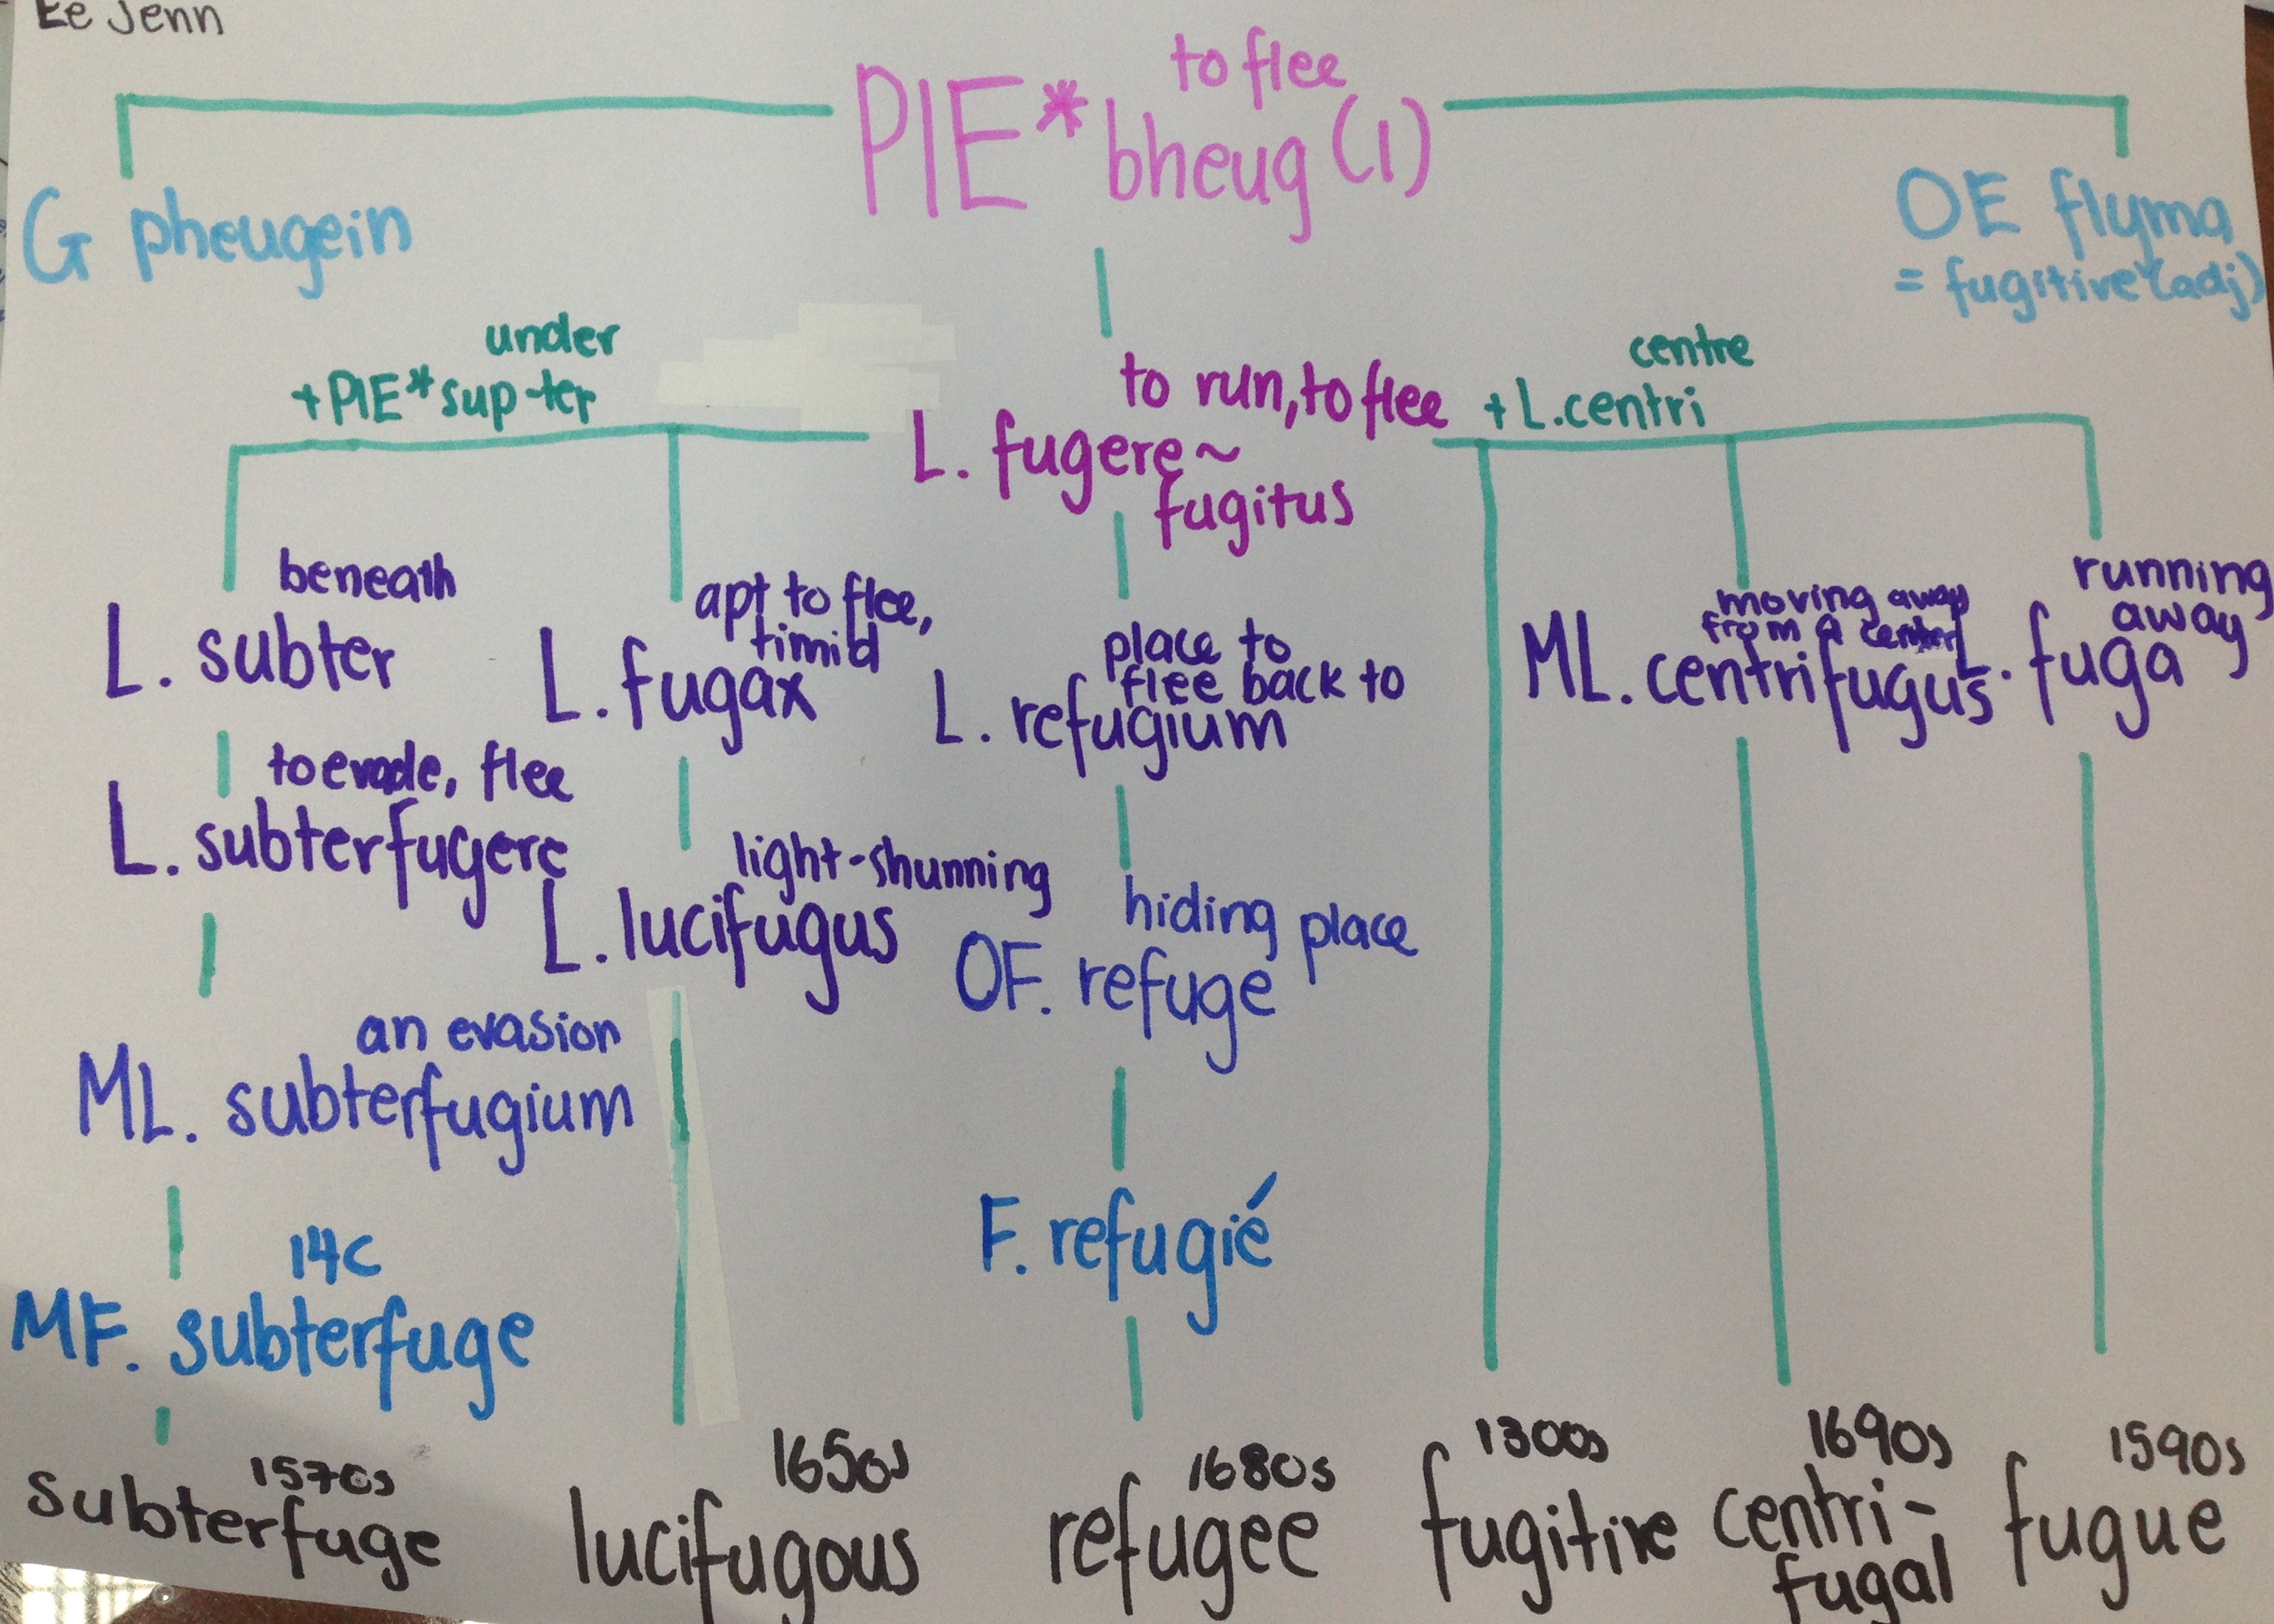 Ee Jenn
to flee
PIE* bheug (1)
G pheugein
OE flyma
= fugitive (adj)
under
+PIE* sup-ter
to run, to flee
L. fugere ~
fugitus
centre
+ L. centri
beneath
L. subter
apt to flee,
timid
L. fugax
place to
flee back to
L. refugium
moving away
from a center
ML. centrifugus
running
away
L. fuga
to evade, flee
L. subterfugere
light-shunning
L. lucifugus
hiding place
OF. refuge
an evasion
ML. subterfugium
F. refugié
14C
MF. subterfuge
1570s
subterfuge
1650s
lucifugous
1680s
refugee
1300s
fugitive
1690s
centri-
fugal
1590s
fugue